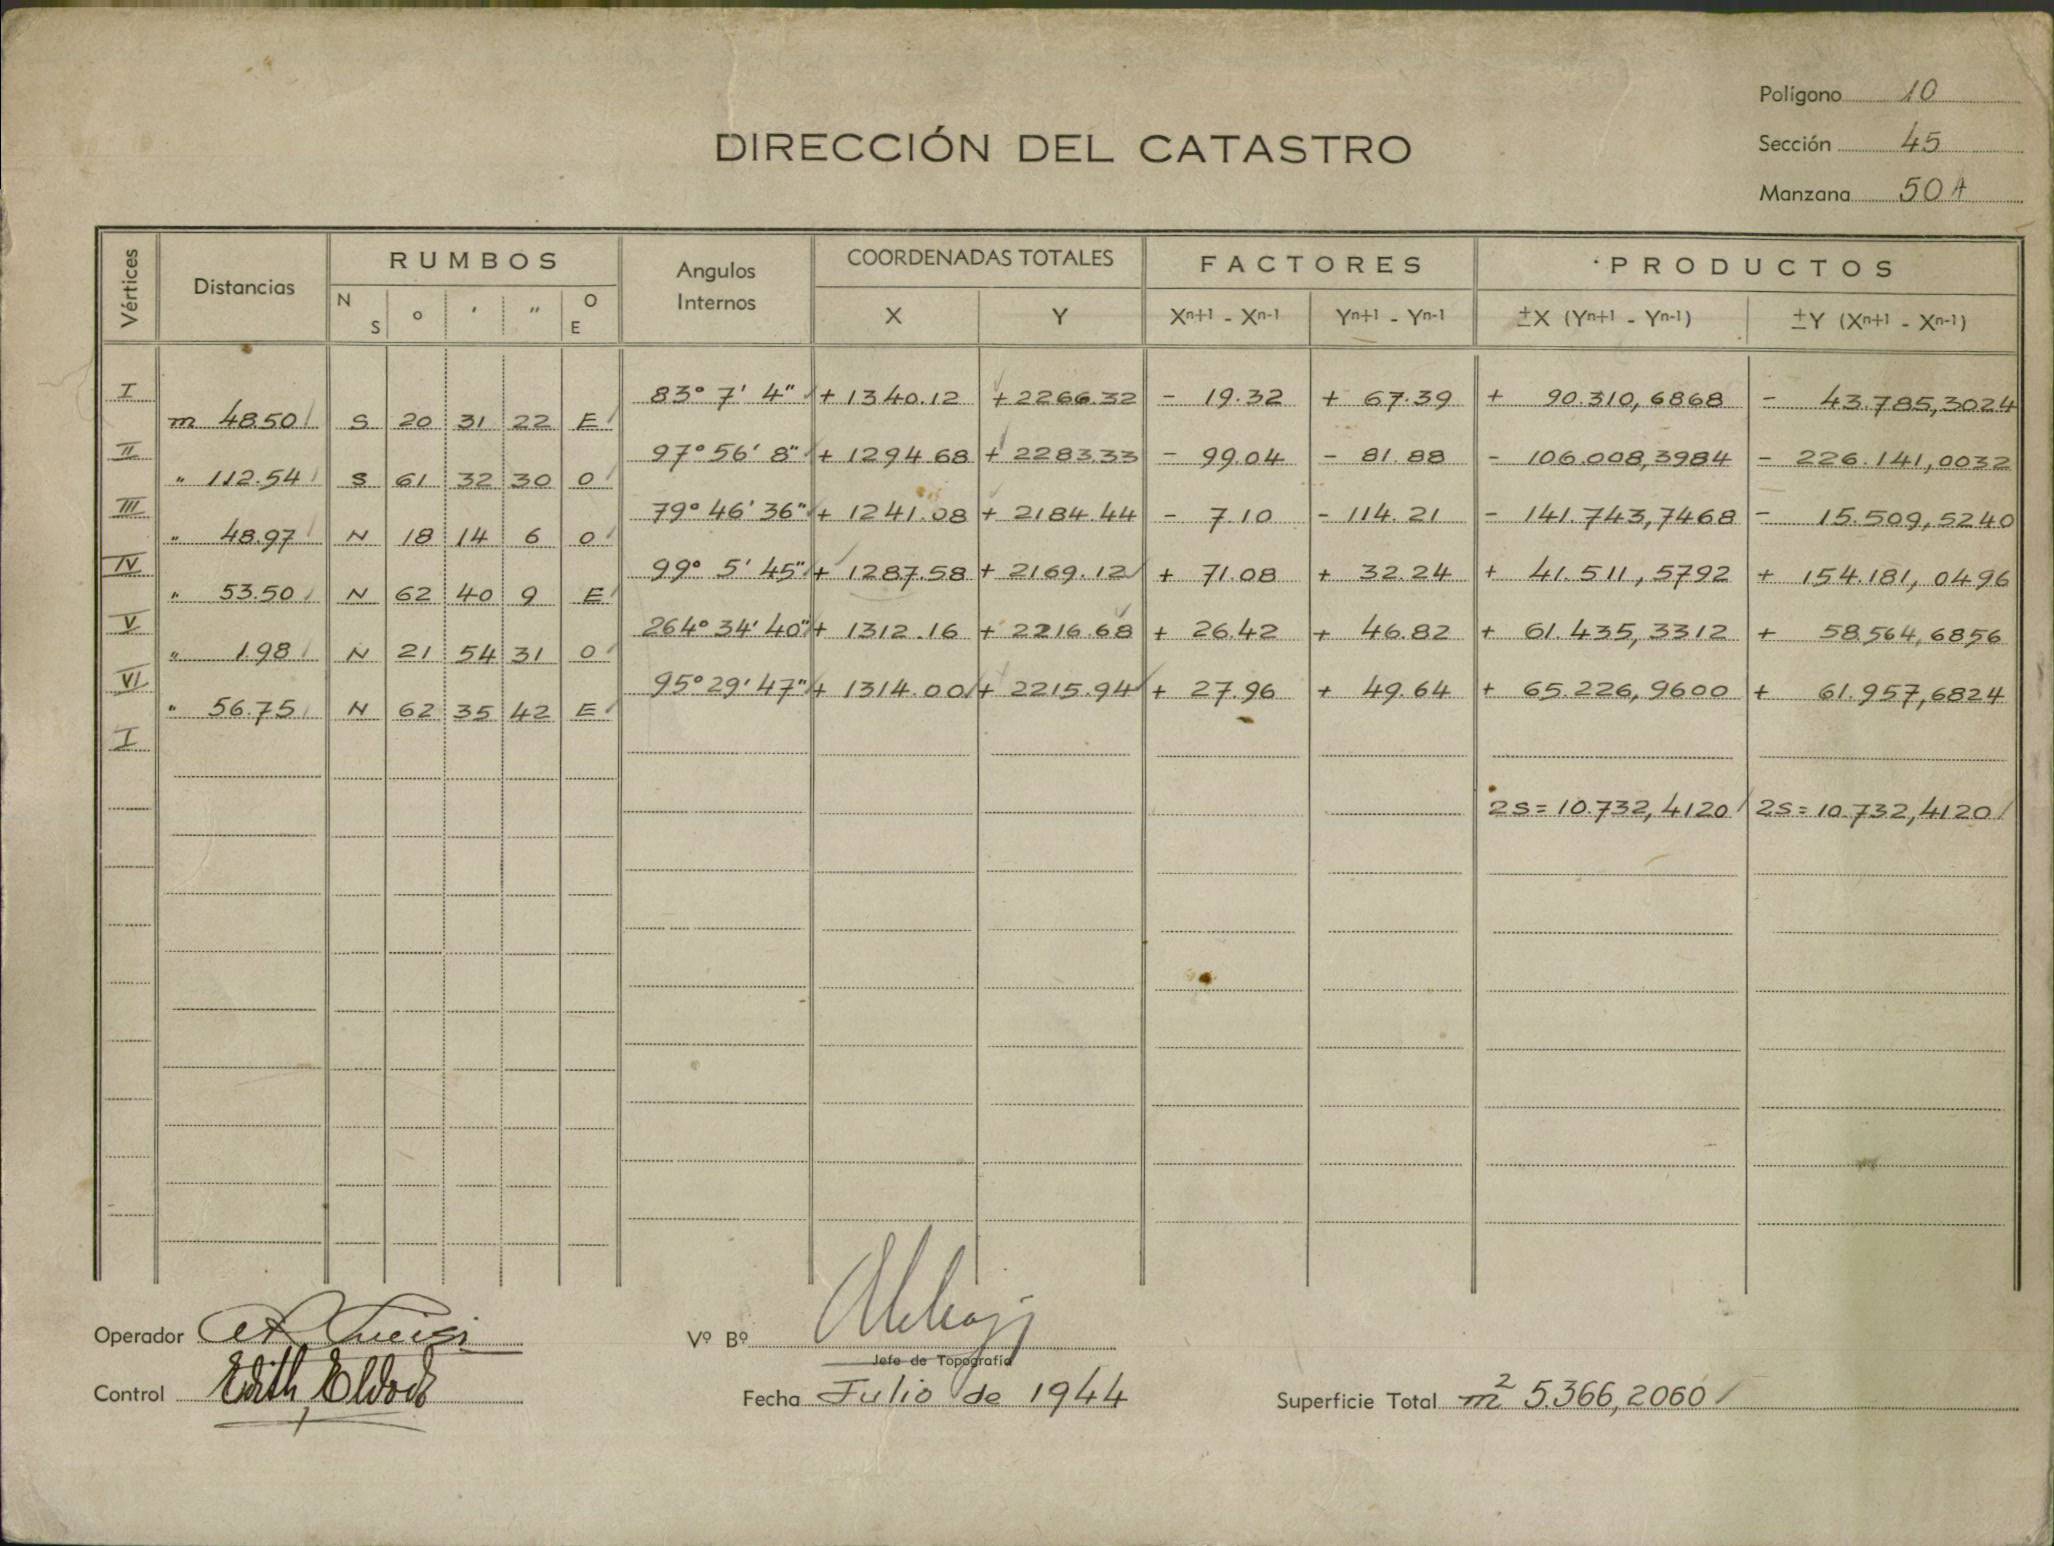 Polígono 10
DIRECCIÓN DEL CATASTRO
Sección 45
Manzana 50A
Vértices Distancias RUMBOS Angulos Internos COORDENADAS TOTALES FACTORES PRODUCTOS
N S ° ' " O E X Y Xn+1 - Xn-1 Yn+1 - Yn-1 ±X (Yn+1 - Yn-1) ±Y (Xn+1 - Xn-1)
I 83° 7' 4" + 1340.12 + 2266.32 - 19.32 + 67.39 + 90.310,6868 - 43.785,3024
m 48.50 S 20 31 22 E
II 97° 56' 8" + 1294.68 + 2283.33 - 99.04 - 81.88 - 106.008,3984 - 226.141,0032
" 112.54 S 61 32 30 O
III 79° 46' 36" + 1241.08 + 2184.44 - 7.10 - 114.21 - 141.743,7468 - 15.509,5240
" 48.97 N 18 14 6 O
IV 99° 5' 45" + 1287.58 + 2169.12 + 71.08 + 32.24 + 41.511,5792 + 154.181,0496
" 53.50 N 62 40 9 E
V 264° 34' 40" + 1312.16 + 2216.68 + 26.42 + 46.82 + 61.435,3312 + 58.564,6856
" 1.98 N 21 54 31 O
VI 95° 29' 47" + 1314.00 + 2215.94 + 27.96 + 49.64 + 65.226,9600 + 61.957,6824
" 56.75 N 62 35 42 E
I
2S = 10.732,4120 2S = 10.732,4120
Operador
Vº Bº
Jefe de Topografía
Control Edith
Fecha Julio de 1944
Superficie Total m² 5.366,2060